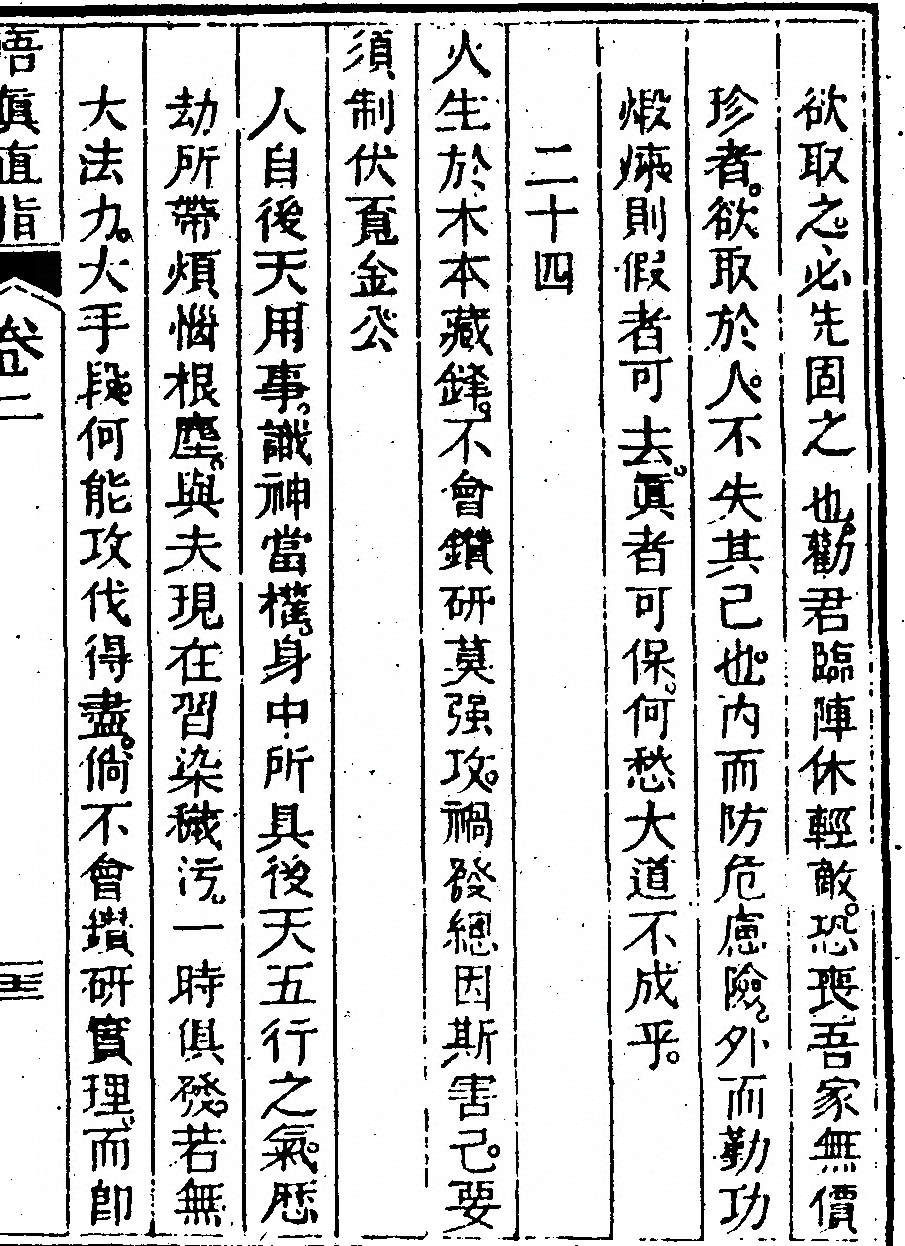 欲取之。必先固之也。勸君臨陣休輕敵。恐喪吾家無價
珍者。欲取於人。不失其己也。內而防危慮險。外而勤功
煅煉。則假者可去。眞者可保。何愁大道不成乎。
二十四
火生於木本藏鋒。不會鑽研莫强攻。禍發總因斯害己。要
須制伏覓金公
人自後天用事。識神當權。身中所具後天五行之氣。歷
劫所帶煩惱根塵。與夫現在習染穢污。一時俱發。若無
大法力。大手段。何能攻伐得盡。倘不會鑽研實理。而卽
悟眞直指 卷二